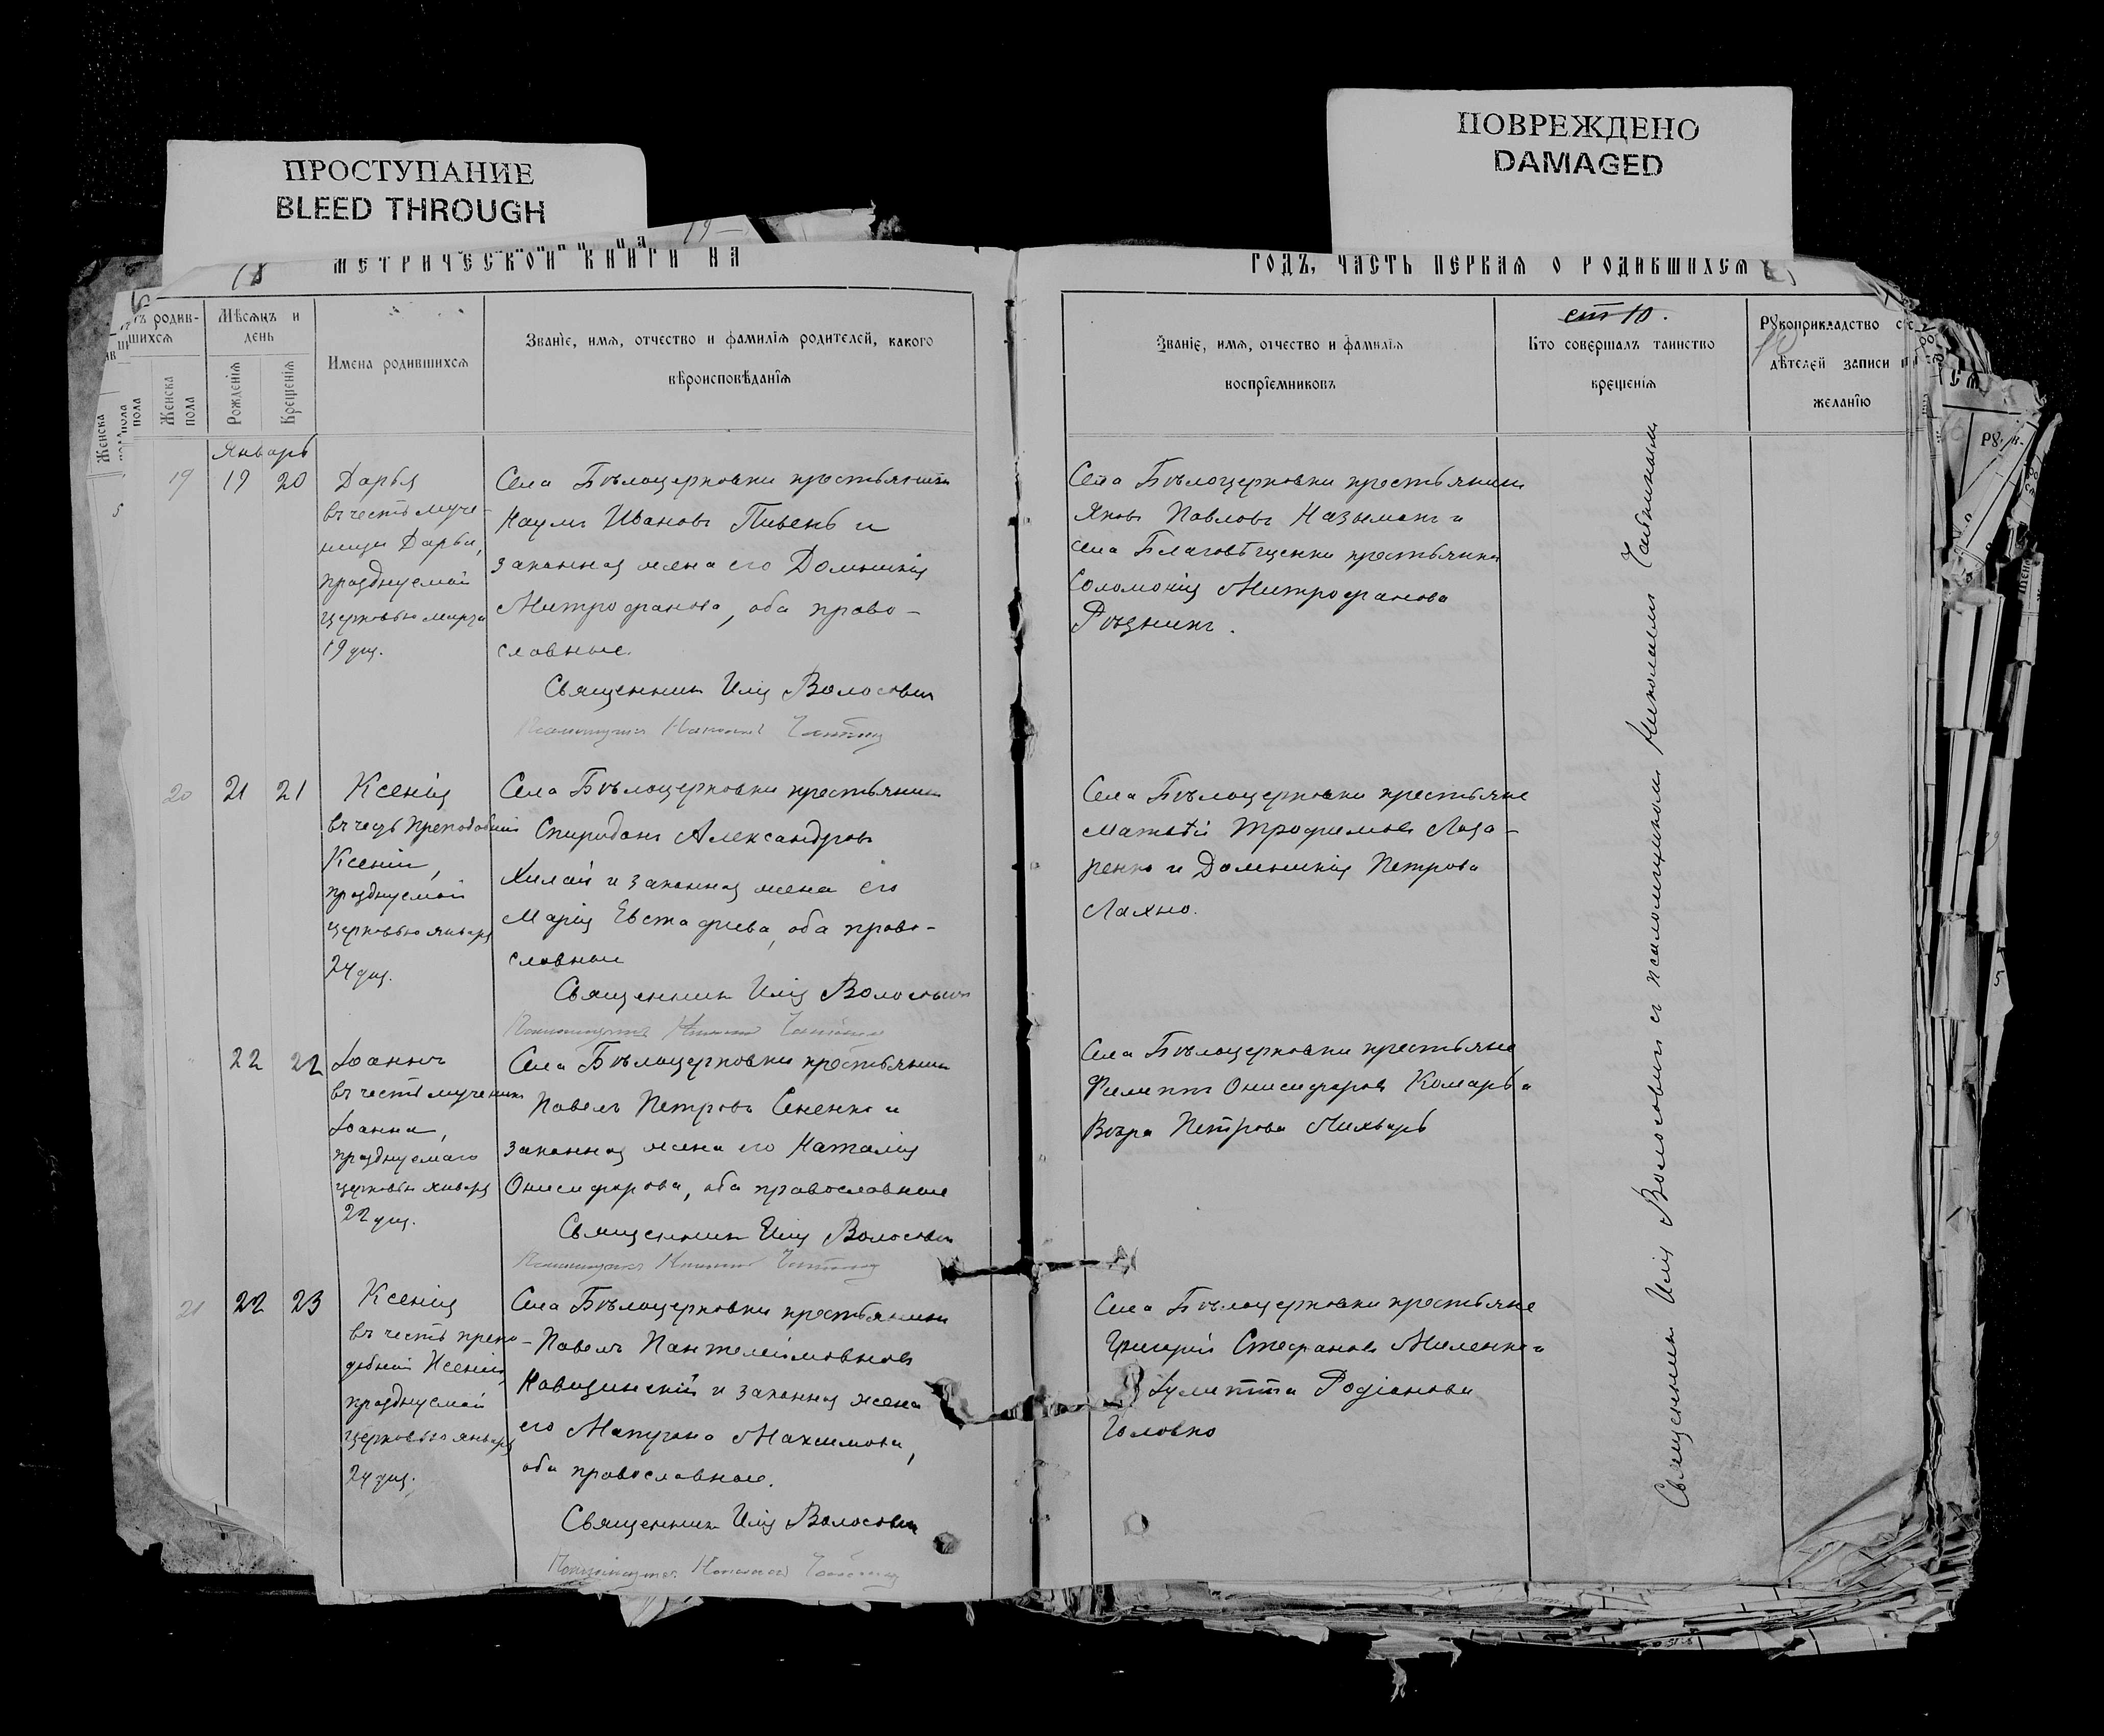 ПРОСТУПАНИЕ
BLEED THROUGH
ПОВРЕЖДЕНО
DAMAGED
МЕТРИЧЕСКОЙ КНИГИ НА
ГОДЪ, ЧАСТЬ ПЕРВАЯ О РОДИВШИХСЯ
родив-
шихся
Женска
пола
Мѣсяцъ и
день
Рожденія
Крещенія
Имена родившихся
Званіе, имя, отчество и фамилія родителей, какого
вѣроисповѣданія
Званіе, имя, отчество и фамилія
воспріемниковъ
ст 10.
Кто совершалъ таинство
крещенія
Рукоприкладство
дѣтелей записи
желанію
Январь
19 19 20
Дарья
въ честь муче-
ницы Дарьи,
празднуемой
церковью марта
19 дня.
Села Бѣлоцерковки крестьянинъ
Наумъ Ивановъ Пивень и
законная жена его Домникія
Митрофанова, оба право-
славные.
Священникъ Илія Волосович
Села Бѣлоцерковки крестьянинъ
Яковъ Павловъ и
села Благовѣщенки крестьянка
Соломонія Митрофанова
20 21 21
Ксенія
въ честь Преподобной
Ксеніи,
празднуемой
церковью января
24 дня.
Села Бѣлоцерковки крестьянинъ
Спиридонъ Александровъ
Хилай и законная жена его
Марія Евстафиева, оба право-
славные
Священникъ Илія Волосович
Села Бѣлоцерковки крестьяне
Матвѣй Трофимовъ Лаза-
ренко и Домникія Петрова
Лахно.
22 22
Іоаннъ
въ честь мученика
Іоанна,
празднуемаго
церковью января
22 дня.
Села Бѣлоцерковки крестьянинъ
Павелъ Петровъ Сененко и
законная жена его Наталія
Онисифорова, оба православные
Священникъ Илія Волосович
Села Бѣлоцерковки крестьяне
Филиппъ Онисифоровъ Комарь и
Вѣра Петрова Лихварь
21 22 23
Ксенія
въ честь препо-
добной Ксеніи,
празднуемой
церковью января
24 дня.
Села Бѣлоцерковки крестьянинъ
Павелъ Пантелеимоновъ
и законная жена
его Матрона Максимова,
оба православные.
Священникъ Илія Волосович
Села Бѣлоцерковки крестьяне
Григорій Стефановъ Миленко и
Іулитта Родіонова
Головко
Священникъ Илія Волосовичъ съ псаломщикомъ Николаемъ